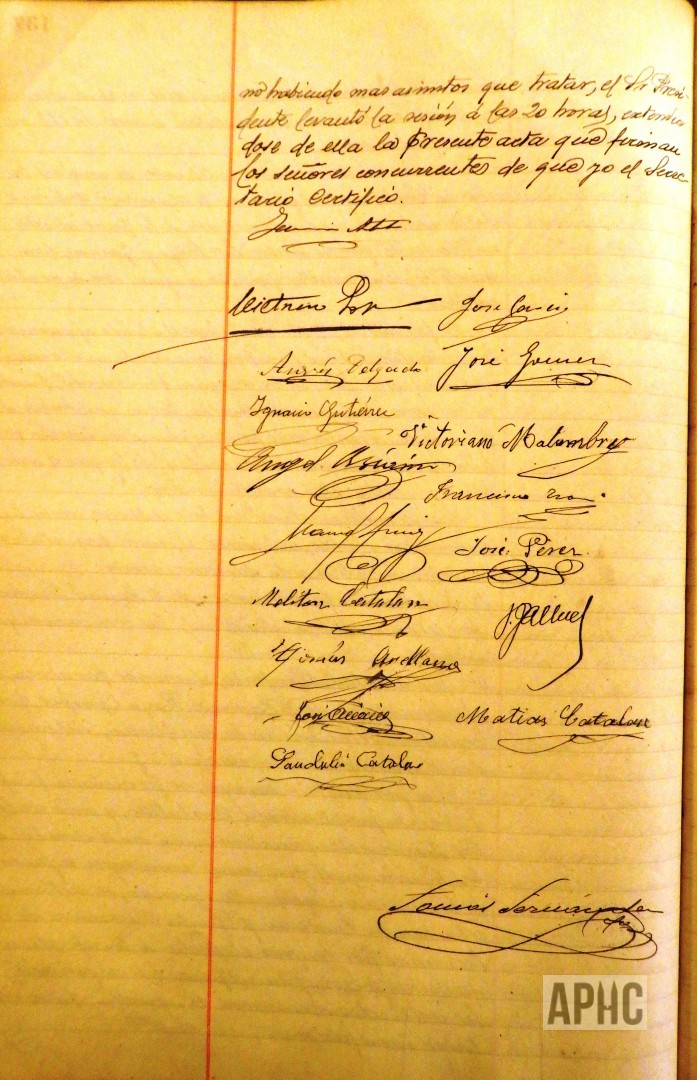 no habiendo mas asuntos que tratar, el Sr Presi-
dente levantó la sesión á las 20 horas, extendien
dose de ella la presente acta que firman
los señores concurrentes de que yo el Secre
tario Certifico.
José Garcia
Andrés Delgado
José Gomez
Ignacio Gutiérrez
Victoriano Malumbres
Angel Asiain
Francisco
José Pérez
Meliton Catalan
J. Jalluel
Tomás Arellano
José
Matias Catalan
Sandalio Catalan
Tomás Fernández
APHC